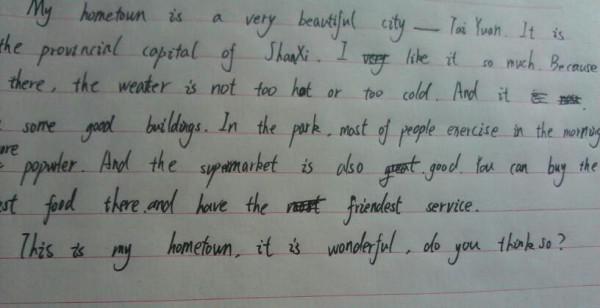 My hometown is a very beautiful city — Tai Yuan. It is
the provincial capital of ShanXi. I like it so much. Because
there, the weater is not too hot or too cold. And it
some good buildings. In the park, most of people exercise in the morning
are popular. And the supermarket is also good. You can buy the
est food there.and have the friendest service.
This is my hometown, it is wonderful, do you think so?